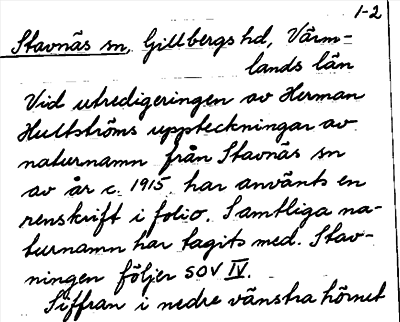 1-2
Stavnäs sn, Gillbergs hd, Värm-
lands län
Vid utredigeringen av Herman
Hultströms uppteckningar av
naturnamn från Stavnäs sn
av år c. 1915 har använts en
renskrift i folio. Samtliga na-
turnamn har tagits med. Stav-
ningen följer SOV IV.
Siffran i nedre vänstra hörnet